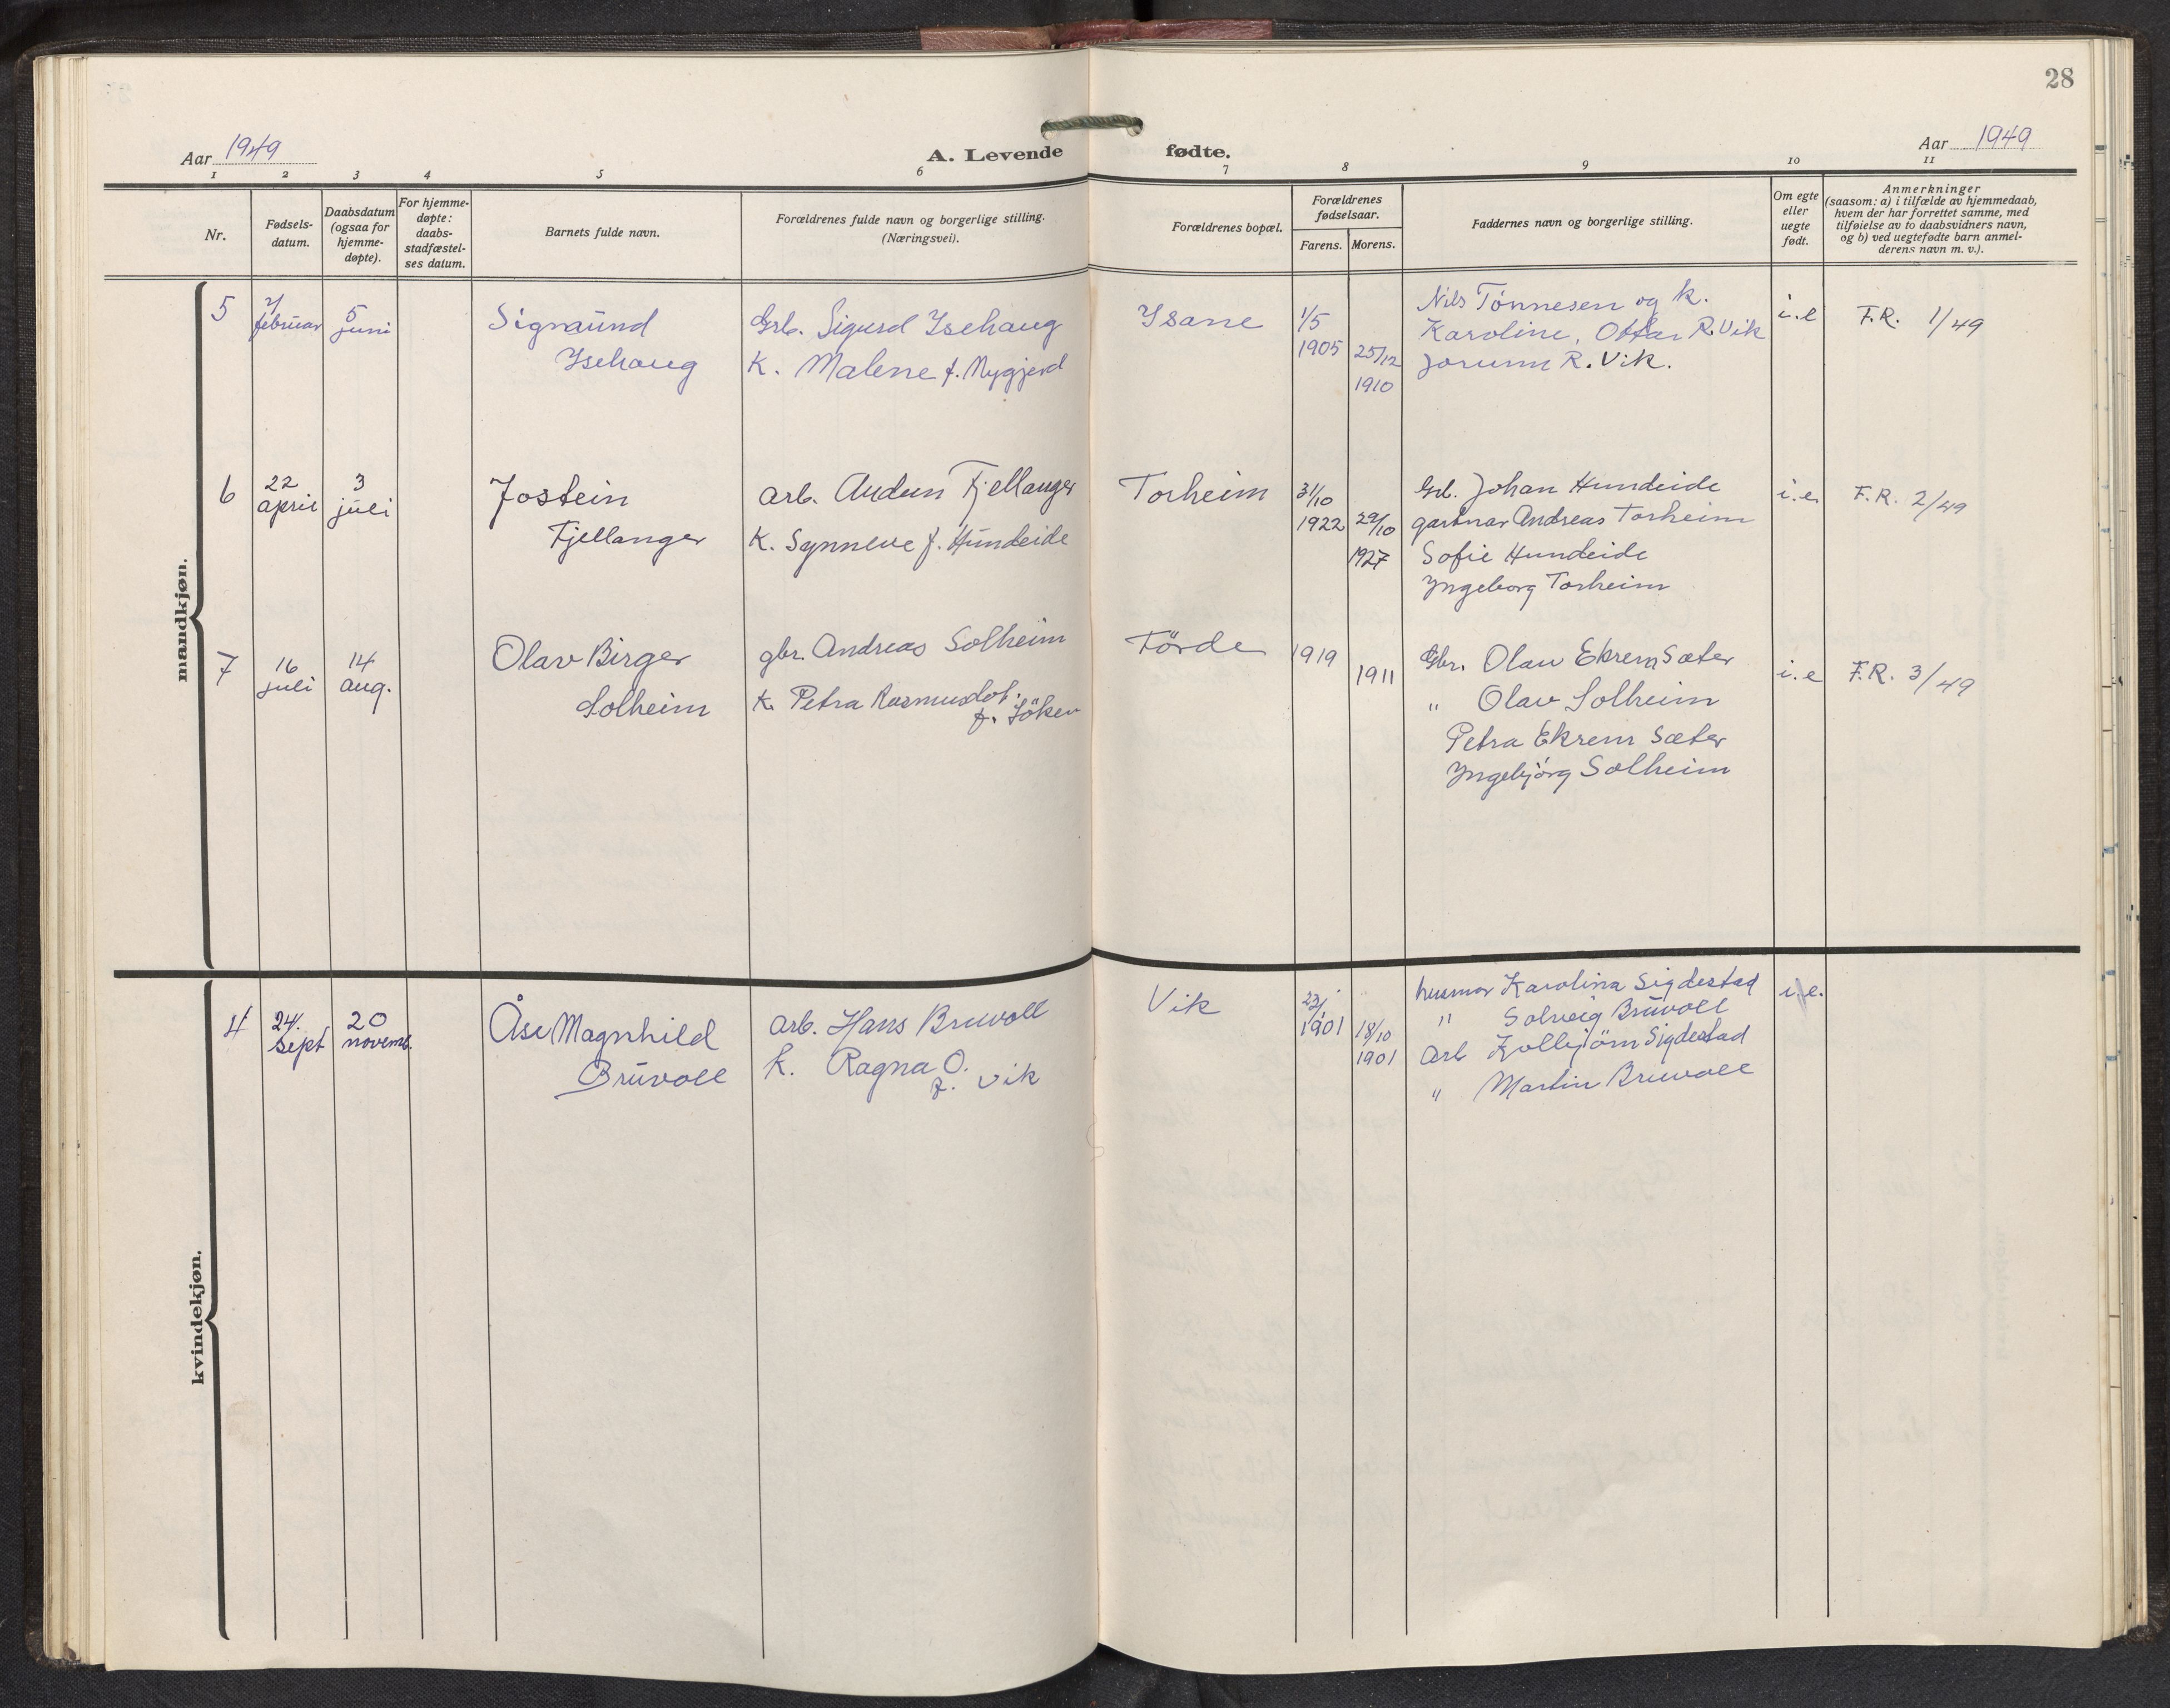 28
Aar 1949
A. Levende fødte.
Aar 1949
1 2 3 4 5 6 7 8 9 10 11
Nr.
Fødsels-
datum.
Daabsdatum
(ogsaa for
hjemme-
døpte).
For hjemme-
døpte:
daabs-
stadfæstel-
ses datum.
Barnets fulde navn.
Forældrenes fulde navn og borgerlige stilling.
(Næringsvei).
Forældrenes bopæl.
Forældrenes
fødselsaar.
Farens. Morens.
Faddernes navn og borgerlige stilling.
Om egte
eller
uegte
født.
Anmerkninger
(saasom: a) i tilfælde av hjemmedaab,
hvem der har forrettet samme, med
tilføielse av to daabsvidners navn,
og b) ved uegtefødte barn anmel-
derens navn m. v.).
mandkjøn.
5
februar
5
juni
Sigmund
Isehaug
Grb. Sigurd Isehaug
K. Malene f. Nygjerd
Isane
1/5
1905
25/12
1910
Nils Tønnesen og k.
Karoline, Ottar R. Vik
Jorunn R. Vik.
i.e
F.R. 1/49
6
22
april
3
juli
Jostein
Fjellanger
arb. Audun Fjellanger
K. Synneve f. Hundeide
Torheim
31/10
1922
29/10
1927
Grb. Johan Hundeide
gartnar Andreas Torheim
Sofie Hundeide
Yngeborg Torheim
i.e.
F.R. 2/49
7
16
juli
14
aug.
Olav Birger
Solheim
gbr. Andreas Solheim
K. Petra Rasmusdot.
Förde
1919
1911
Gbr. Olav Ekrem Sæter
" Olav Solheim
Petra Ekrem Sæter
Yngebjörg Solheim
i.e
F.R. 3/49
kvindekjøn.
4
24.
sept
20
novemb.
Åse Magnhild
Bruvoll
arb. Hans Bruvoll
k. Ragna O.
f. Vik
Vik
1901
18/10
1901
husmor Karolina Sigdestad
" Solveig Bruvoll
Arb Kolbjörn Sigdestad
" Martin Bruvoll
i.e.